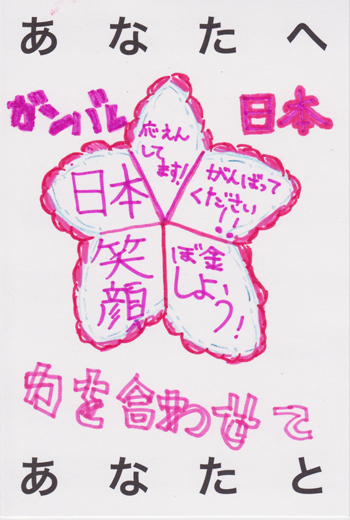 あなたへ
ガンバレ 日本
応えん
して
ます!
がんばって
ください
!!
日本
笑
顔
ぼ金
しよう!
力を合わせて
あなたと